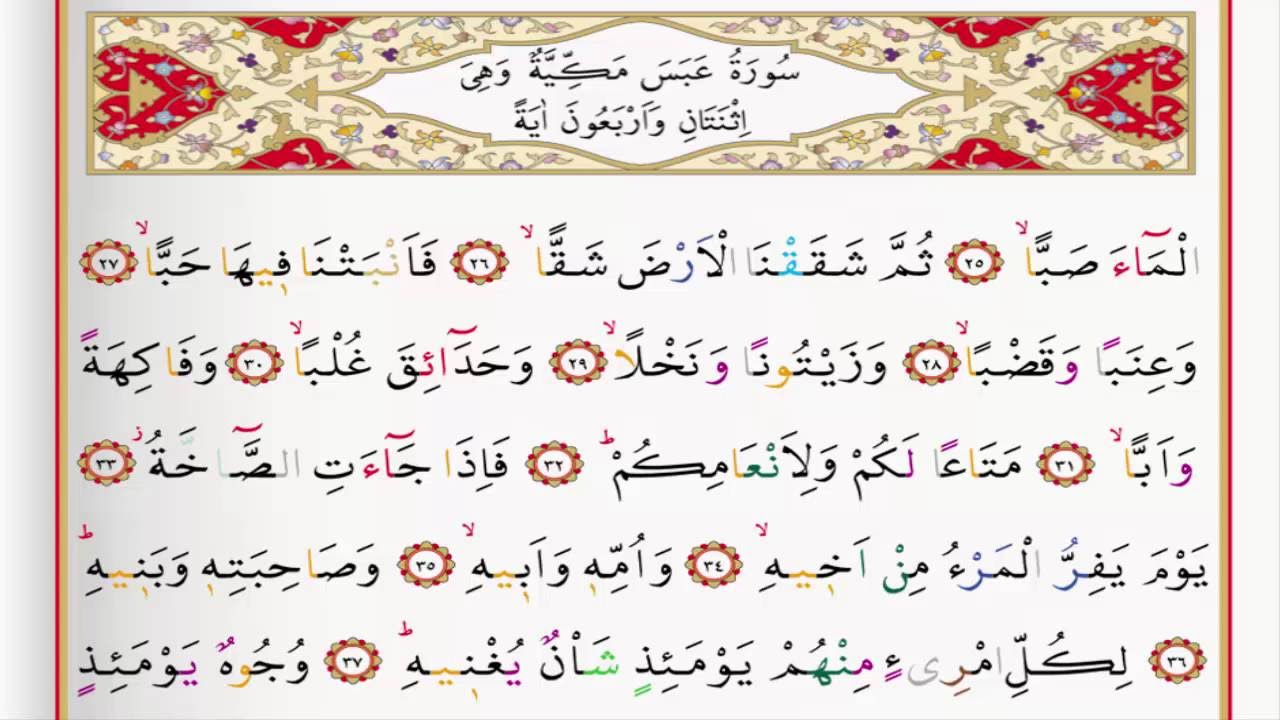 سُورَةُ عَبَسَ مَكِّيَّةٌ وَهِىَ
اِثْنَتَانِ وَاَرْبَعُونَ اٰيَةً
الْمَٓاءَ صَبًّاۙ ﴿٢٥﴾ ثُمَّ شَقَقْنَا الْاَرْضَ شَقًّاۙ ﴿٢٦﴾ فَاَنْبَتْنَا فٖيهَا حَبًّاۙ ﴿٢٧﴾
وَعِنَبًا وَقَضْبًاۙ ﴿٢٨﴾ وَزَيْتُونًا وَنَخْلًاۙ ﴿٢٩﴾ وَحَدَٓائِقَ غُلْبًاۙ ﴿٣٠﴾ وَفَاكِهَةً
وَاَبًّاۙ ﴿٣١﴾ مَتَاعًا لَكُمْ وَلِاَنْعَامِكُمْؕ ﴿٣٢﴾ فَاِذَا جَٓاءَتِ الصَّٓاخَّةُؗ ﴿٣٣﴾
يَوْمَ يَفِرُّ الْمَرْءُ مِنْ اَخٖيهِۙ ﴿٣٤﴾ وَاُمِّهٖ وَاَبٖيهِۙ ﴿٣٥﴾ وَصَاحِبَتِهٖ وَبَنٖيهِؕ
﴿٣٦﴾ لِكُلِّ امْرِیءٍ مِنْهُمْ يَوْمَئِذٍ شَاْنٌ يُغْنٖيهِؕ ﴿٣٧﴾ وُجُوهٌ يَوْمَئِذٍ